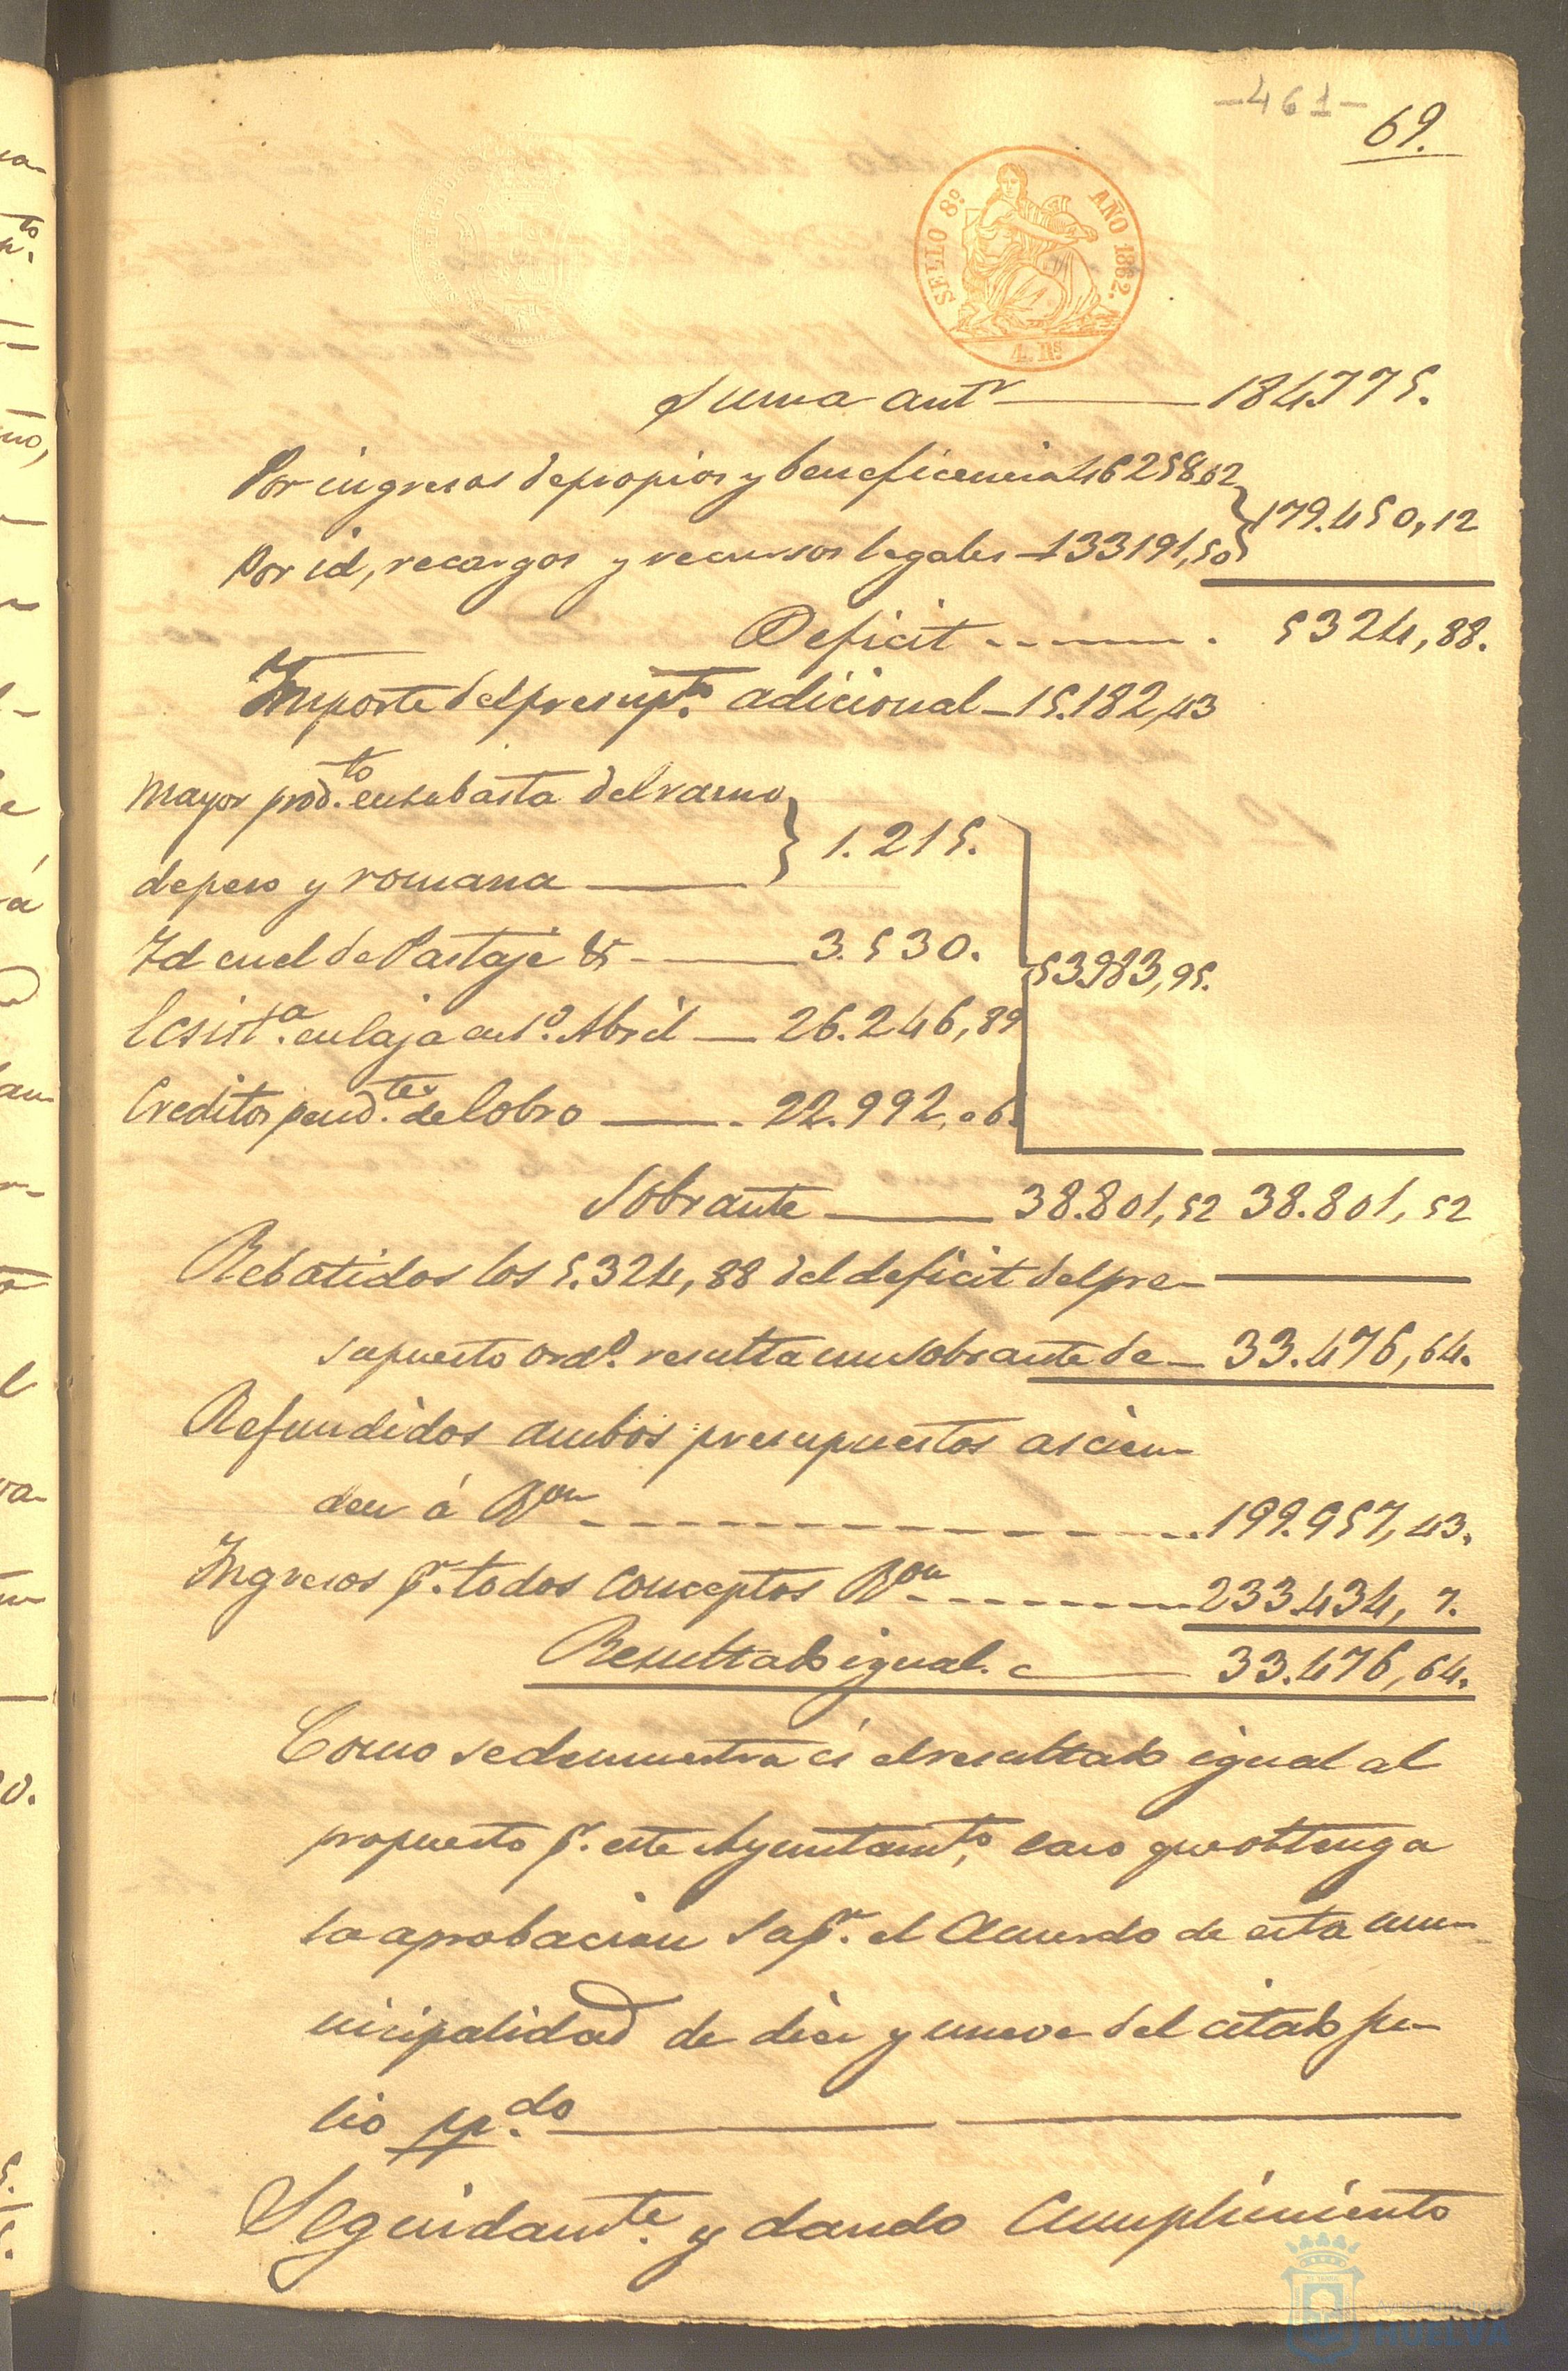 -461-
69.
SELLO 8º AÑO 1862.
4. Rs
Suma antr 184775.
Por ingresos de propios y beneficencia 46258,62
179.450,12
Por id, recargos y recursos legales 133191,50
Deficit 5324,88.
Importe del presupto. adicional 15.182,43
Mayor prodto. en subasta del ramo
de peso y romana 1.215.
Id en el de Pastaje &ª 3.530.
53983,95.
Ecsista. en Caja en 1º. Abril 26.246,89
Creditos pendtes. de Cobro 22.992,06
Sobrante 38.801,52 38.801,52
Rebatidos los 5.324,88 del deficit del pre-
supuesto ordº. resulta un sobrante de 33.476,64.
Refundidos ambos presupuestos ascien-
den á Ron 199.957,43.
Ingresos pr. todos conceptos Ron 233.434,7.
Resultado igual. 33.476,64.
Como se demuestra és el resultado igual al
propuesto pr. este Ayuntamto, caso que obtenga
la aprobacion Sapr. el Acuerdo de esta mu-
nicipalidad de diez y nueve del citado Ju-
lio ppdo.
Seguidamte. y dando cumplimiento
HUELVA